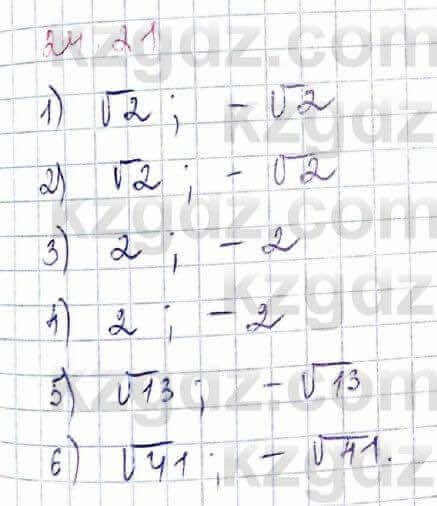 24.21
1) √2; -√2
2) √2; -√2
3) 2; -2
4) 2; -2
5) √13; -√13
6) √41; -√41.
kzgdz.com
kzgdz.com
kzgdz.com
kzgdz.com
kzgdz.com
kzgdz.com